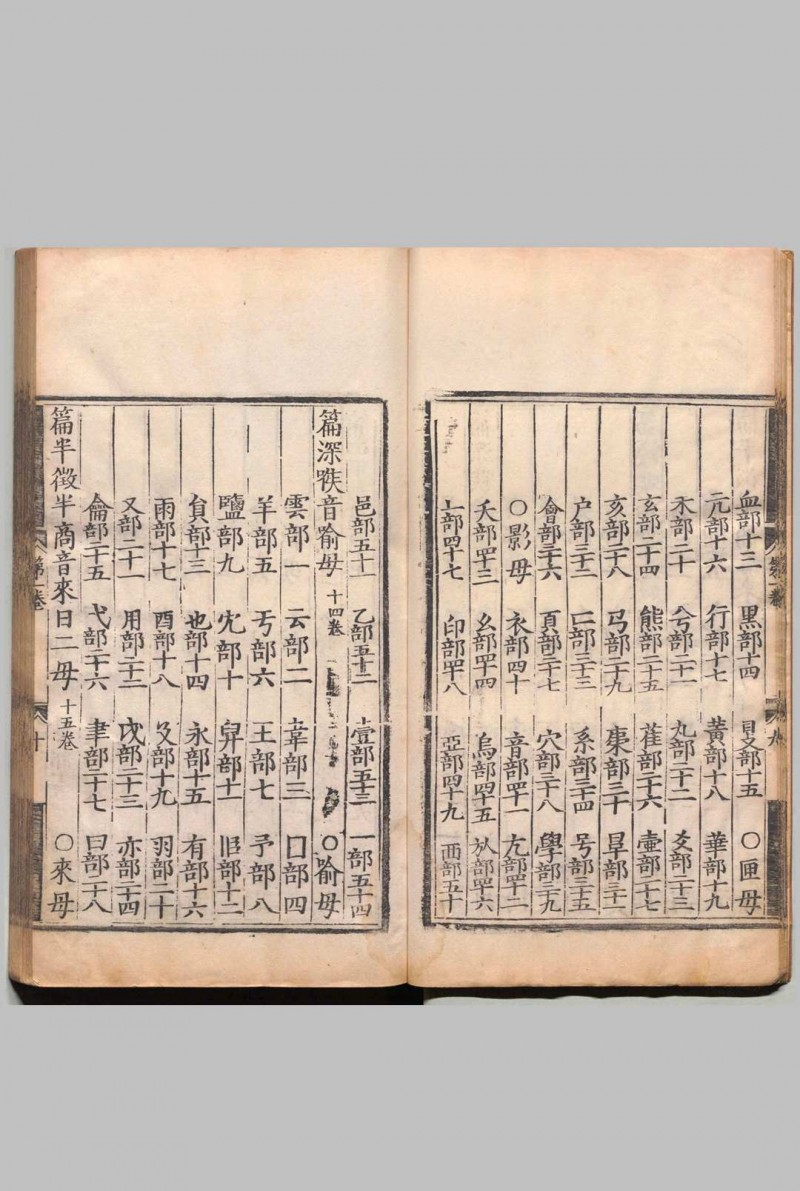 血部十三 黑部十四 𥄎部十五 〇匣母
元部十六 行部十七 黃部十八 華部十九
禾部二十 兮部二十一 丸部二十二 爻部二十三
玄部二十四 熊部二十五 萑部二十六 壷部二十七
亥部二十八 弓部二十九 㯥部三十 旱部三十一
戶部三十二 匸部三十三 系部三十四 号部三十五
會部三十六 頁部三十七 穴部三十八 學部三十九
〇影母 衣部四十 音部四十一 尢部四十二
夭部四十三 幺部四十四 烏部四十五 㫃部四十六
𠃊部四十七 印部四十八 亞部四十九 襾部五十
第一卷 九
邑部五十一 乙部五十二 壹部五十三 一部五十四
篇深喉音喻母 十四卷 〇喻母
雲部一 云部二 韋部三 囗部四
羊部五 丂部六 王部七 予部八
鹽部九 冘部十 𦤝部十一 𦣝部十二
員部十三 也部十四 永部十五 有部十六
雨部十七 酉部十八 殳部十九 羽部二十
又部二十一 用部二十二 戉部二十三 亦部二十四
龠部二十五 弋部二十六 聿部二十七 曰部二十八
篇半徵半商音來日二母 十五卷 〇來母
第一卷 十